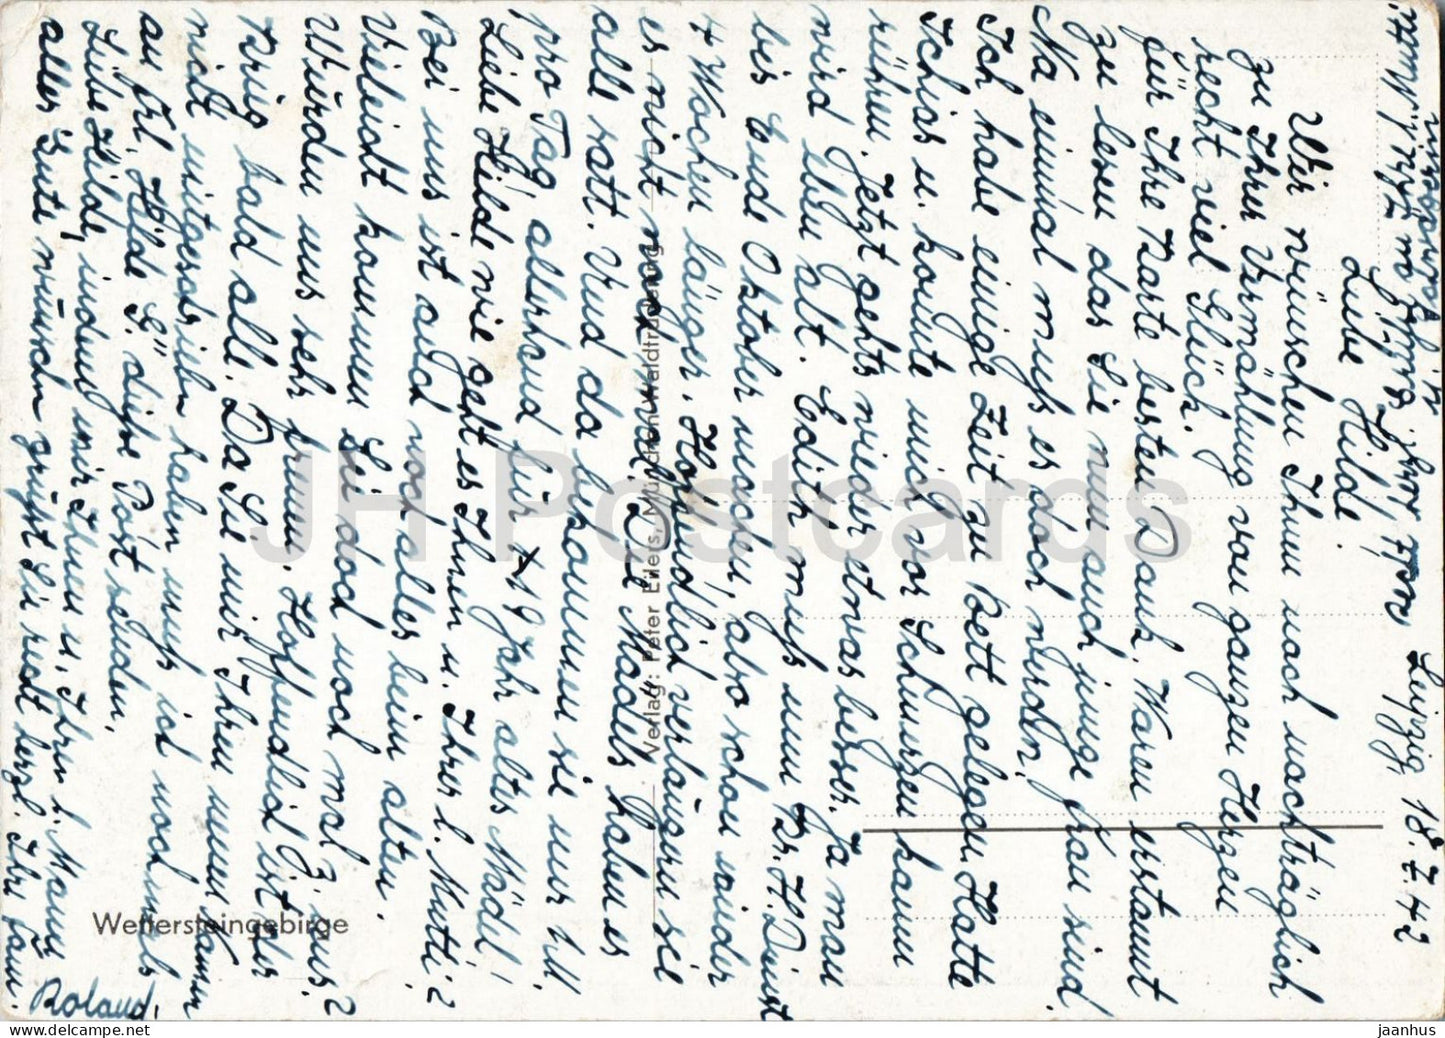 Leipzig, 18.7.42
Liebe Hilde.
Wir wünschen Ihnen noch nachträglich
zu Ihrer Vermählung von ganzen Herzen
recht viel Glück.
für Ihre Karte besten Dank. Waren erstaunt
zu lesen das Sie nun auch junge Frau sind
Na einmal muß es doch werden.
Ich habe einige Zeit zu Bett gelegen. Hatte
Ischias u. konnte mich vor Schmerzen kaum
rühren. Jetzt gehts wieder etwas besser. Ja man
wird eben alt. Edith muß nun Kr.H.Dienst
bis Ende Oktober machen, also schon wieder
4 Wochen länger. Hoffendlich verlängern sie
es nicht noch mal. Die Mädels haben es
alle satt. Und da bekommen sie nur 1 M.
pro Tag, allerhand für 19 Jahr altes Mädel!
Liebe Hilde wie geht es Ihnen u. Ihrer l. Mutti?
Bei uns ist auch noch alles beim alten.
Vieleicht kommen Sie doch noch mal z. uns?
Würden uns sehr freuen. Hoffendlich ist der
Krieg bald alle. Da Sie mir Ihren neuen Namen
nicht mitgeschrieben haben muß ich nochmals
an Frl. Hilde G. diese Post senden.
Liebe Hilde, indem wir Ihnen u. Ihren l. Mann
alles Gute wünschen grüßt Sie recht herzl. Ihre Fam.
Roland.
Wettersteingebirge
Verlag: Peter Eilers, München-Waldtrudering
JH Postcards
© www.delcampe.net
jaanhus